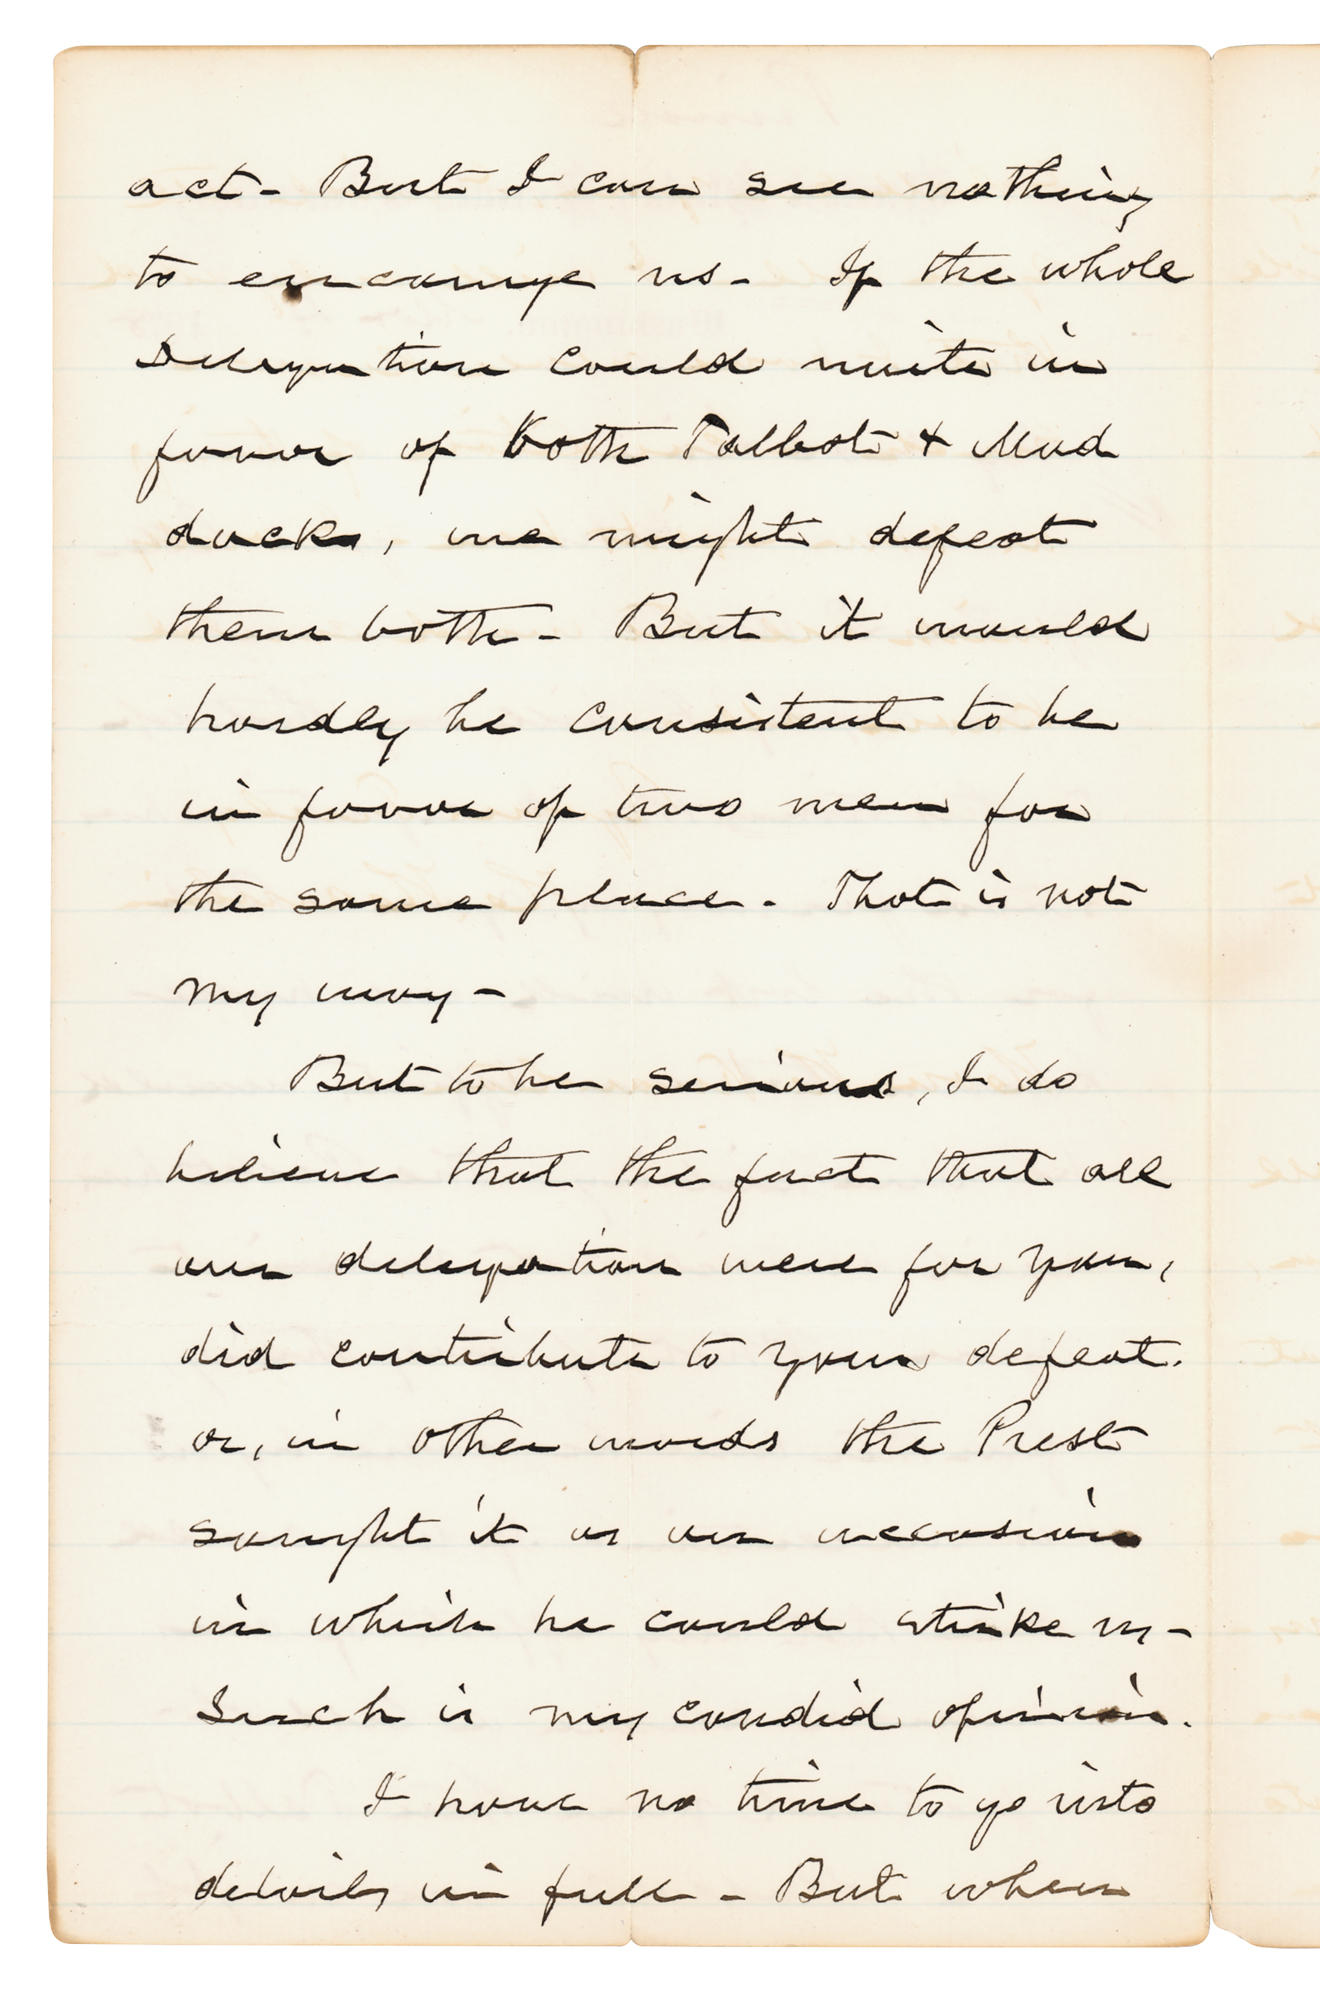 act - But I can see nothing
to encourage us - If the whole
Delegation could unite in
favor of both Talbot & Mad
docks, we might defeat
them both - But it would
hardly be consistent to be
in favor of two men for
the same place. That is not
my way -
But to be serious, I do
believe that the fact that all
our delegation were for you,
did contribute to your defeat.
or, in other words the Prest
sought it as an occasion
in which he could strike us -
Such is my candid opinion.
I have no time to go into
details in full - But when